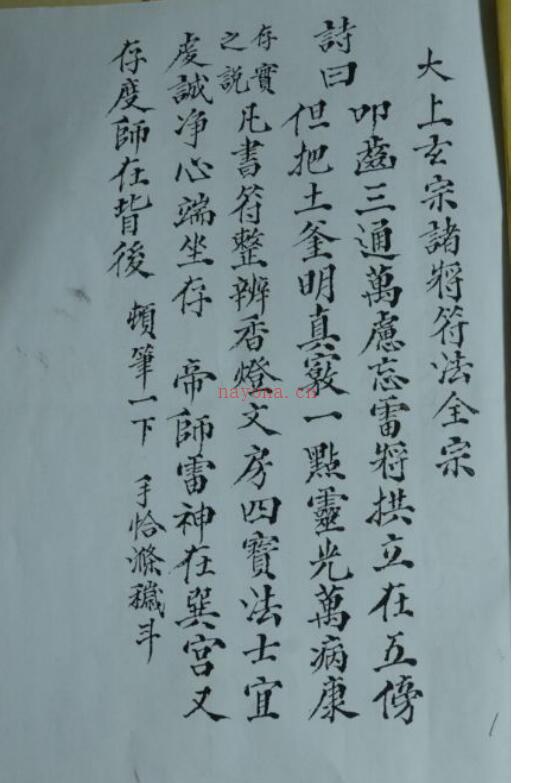 大上玄宗諸將符法全宗
詩曰
叩齒三通萬慮忘雷將拱立在五傍
但把土釜明真竅一點靈光萬病康
存實
之説
凡書符整辦香燈文房四寶法士宜
虔誠净心端坐存 帝師雷神在巽宫又
存度師在背後 頓筆一下 手恰滌穢斗
nayona.cn
1